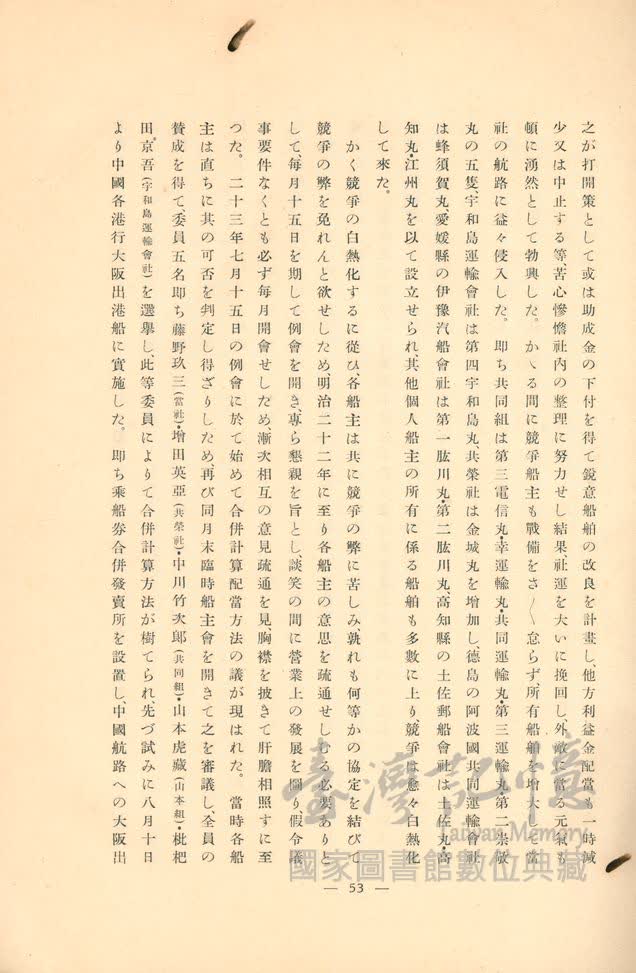 之が打開策として或は助成金の下付を得て鋭意船舶の改良を計畫し、他方利益金配當も一時減
少又は中止する等、苦心慘憺社內の整理に努力せし結果、社運を大いに挽回し、外敵に當る元氣も
頓に湧然として勃興した。かゝる間に競爭船主も戰備をさ〱怠らず、所有船舶を增大して當
社の航路に益々侵入した。卽ち共同組は第三電信丸・幸運輸丸・共同運輸丸・第三運輸丸・第二崇敏
丸の五隻、宇和島運輸會社は第四宇和島丸、共榮社は金城丸を增加し、德島の阿波國共同運輸會社
は蜂須賀丸、愛媛縣の伊豫汽船會社は第一肱川丸・第二肱川丸、高知縣の土佐郵船會社は土佐丸・高
知丸・江州丸を以て設立せられ、其他個人船主の所有に係る船舶も多數に上り、競爭は愈々白熱化
して來た。
かく競爭の白熱化するに從ひ、各船主は共に競爭の弊に苦しみ、孰れも何等かの協定を結びて
競爭の弊を免れんと欲せしため、明治二十二年に至り各船主の意思を疏通せしむる必要ありと
して、每月十五日を期して例會を開き、專ら懇親を旨とし、談笑の間に營業上の發展を圖り、假令議
事要件なくとも必ず每月開會せしため、漸次相互の意見疏通を見、胸襟を披きて肝膽相照すに至
つた。二十三年七月十五日の例會に於て始めて合併計算配當方法の議が現はれた。當時各船
主は直ちに其の可否を判定し得ざりしため、再び同月末臨時船主會を開きて之を審議し、全員の
賛成を得て、委員五名卽ち藤野玖三(當社)・增田英亞(共榮社)・中川竹次郞(共同組)・山本虎藏(山本組)・枇杷
田京吾(宇和島運輸會社)を選擧し、此等委員によりて合併計算方法が樹てられ、先づ試みに八月十日
より中國各港行大阪出港船に實施した。卽ち乘船券合併發賣所を設置し、中國航路への大阪出
— 53 —
臺灣記憶
Taiwan Memory
國家圖書館數位典藏